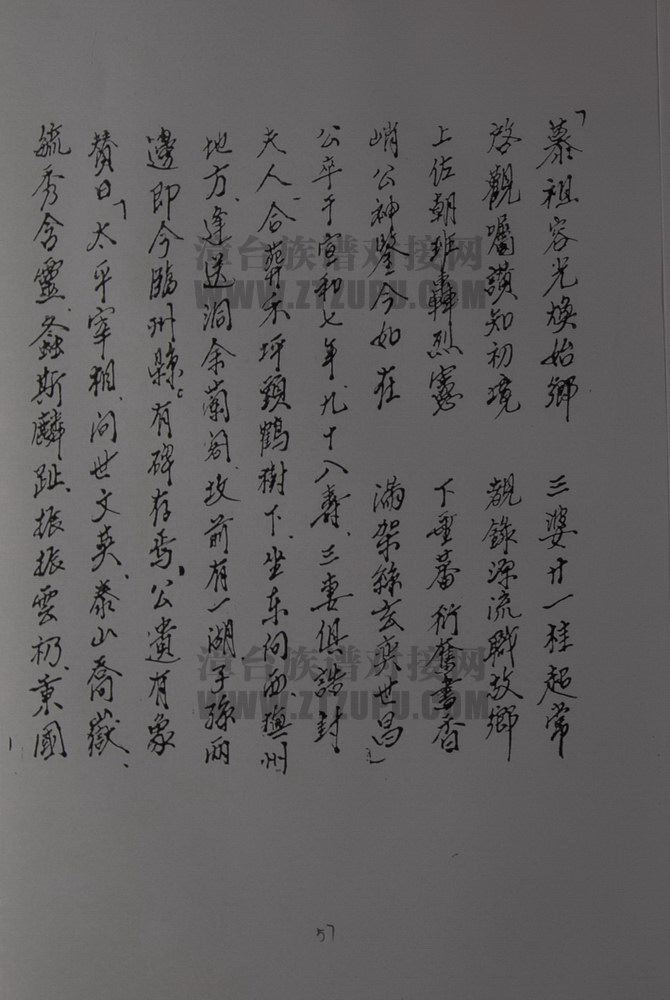 「慕祖容光焕始鄉 三婆廿一桂超常
啓觀囑讀知初境 覩錄源流戰故鄉
上佐朝班轟烈憲 下垂蕃衍奮書香
峭公神鑒今如在 滿架緜玄奕世昌」
公卒于宣和七年、九十八壽、三妻俱誥封
夫人、合葬禾坪頭鶴樹下、坐东向西、撫州
地方、逢送洞余蘭窩、坟前有一湖、子孫兩
邊即今臨州縣。有碑存焉、公遺有象
贊曰「太平宰相、问世文英、泰山喬嶽、
毓秀含靈、螽斯麟趾、振振雲礽、東國
57
漳台族谱对接网
WWW.ZTZUPU.COM
漳台族谱对接网
WWW.ZTZUPU.COM